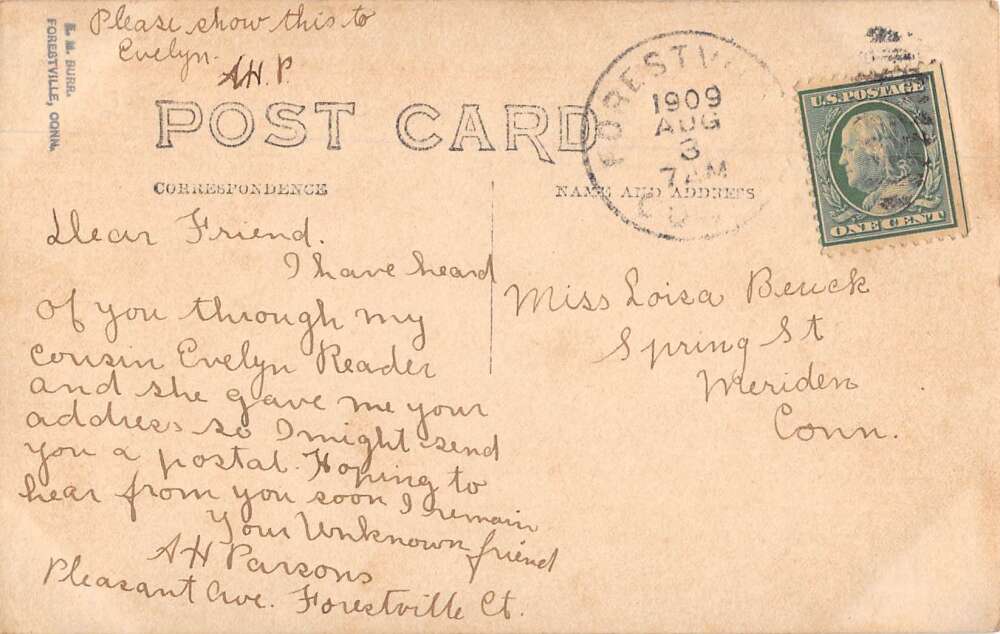 Please show this to
Evelyn.
A.H.P
E. M. BURR.
FORESTVILLE, CONN.
POST CARD
CORRESPONDENCE
NAME AND ADDRESS
1909
AUG
3
7 AM
U.S. POSTAGE
ONE CENT
Dear Friend.
I have heard
of you through my
cousin Evelyn Reader
and she gave me your
address so I might send
you a postal. Hoping to
hear from you soon I remain
Your Unknown friend
A H Parsons
Pleasant Ave. Forestville Ct.
Miss Loisa Beuck
Spring St
Meriden
Conn.